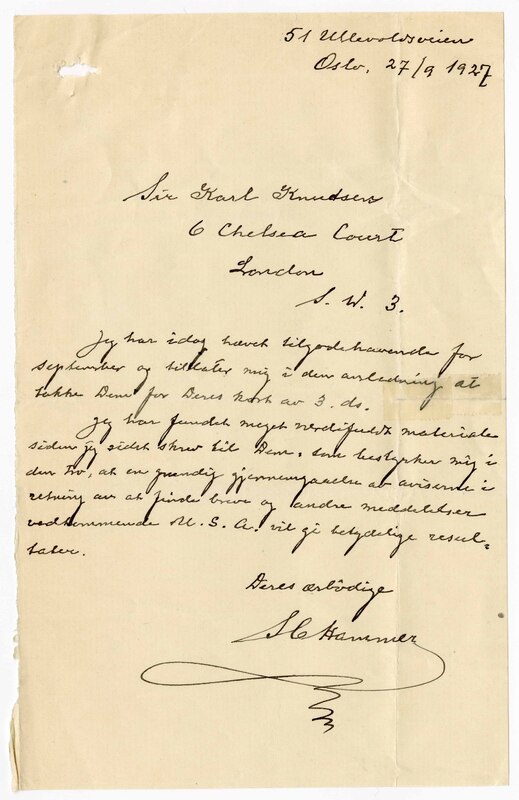 51 Ullevoldsveien
Oslo, 27/9 1927
Sir Karl Knudsen
6 Chelsea Court
London
S. W. 3.
Jeg har idag hævet tilgodehavende for
september og tillater mig i den anledning at
takke Dem for Deres kort av 3. ds.
Jeg har fundet meget værdifuldt materiale
siden jeg sidst skrev til Dem, som bestyrker mig i
den tro, at en grundig gjennemgaaelse av aviserne i
retning av at finde breve og andre meddelelser
vedkommende U. S. A. vil gi betydelige resul=
tater.
Deres ærbödige
S C Hammer